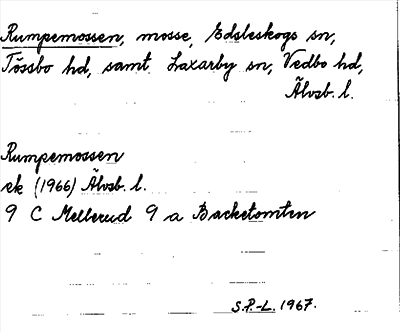 Rumpemossen, mosse, Edsleskogs sn,
Tössbo hd, samt Laxarby sn, Vedbo hd,
Älvsb. l.
Rumpemossen
ek (1966) Älvsb. l.
9 C Mellerud 9 a Backetomten
S.P.-L. 1967.